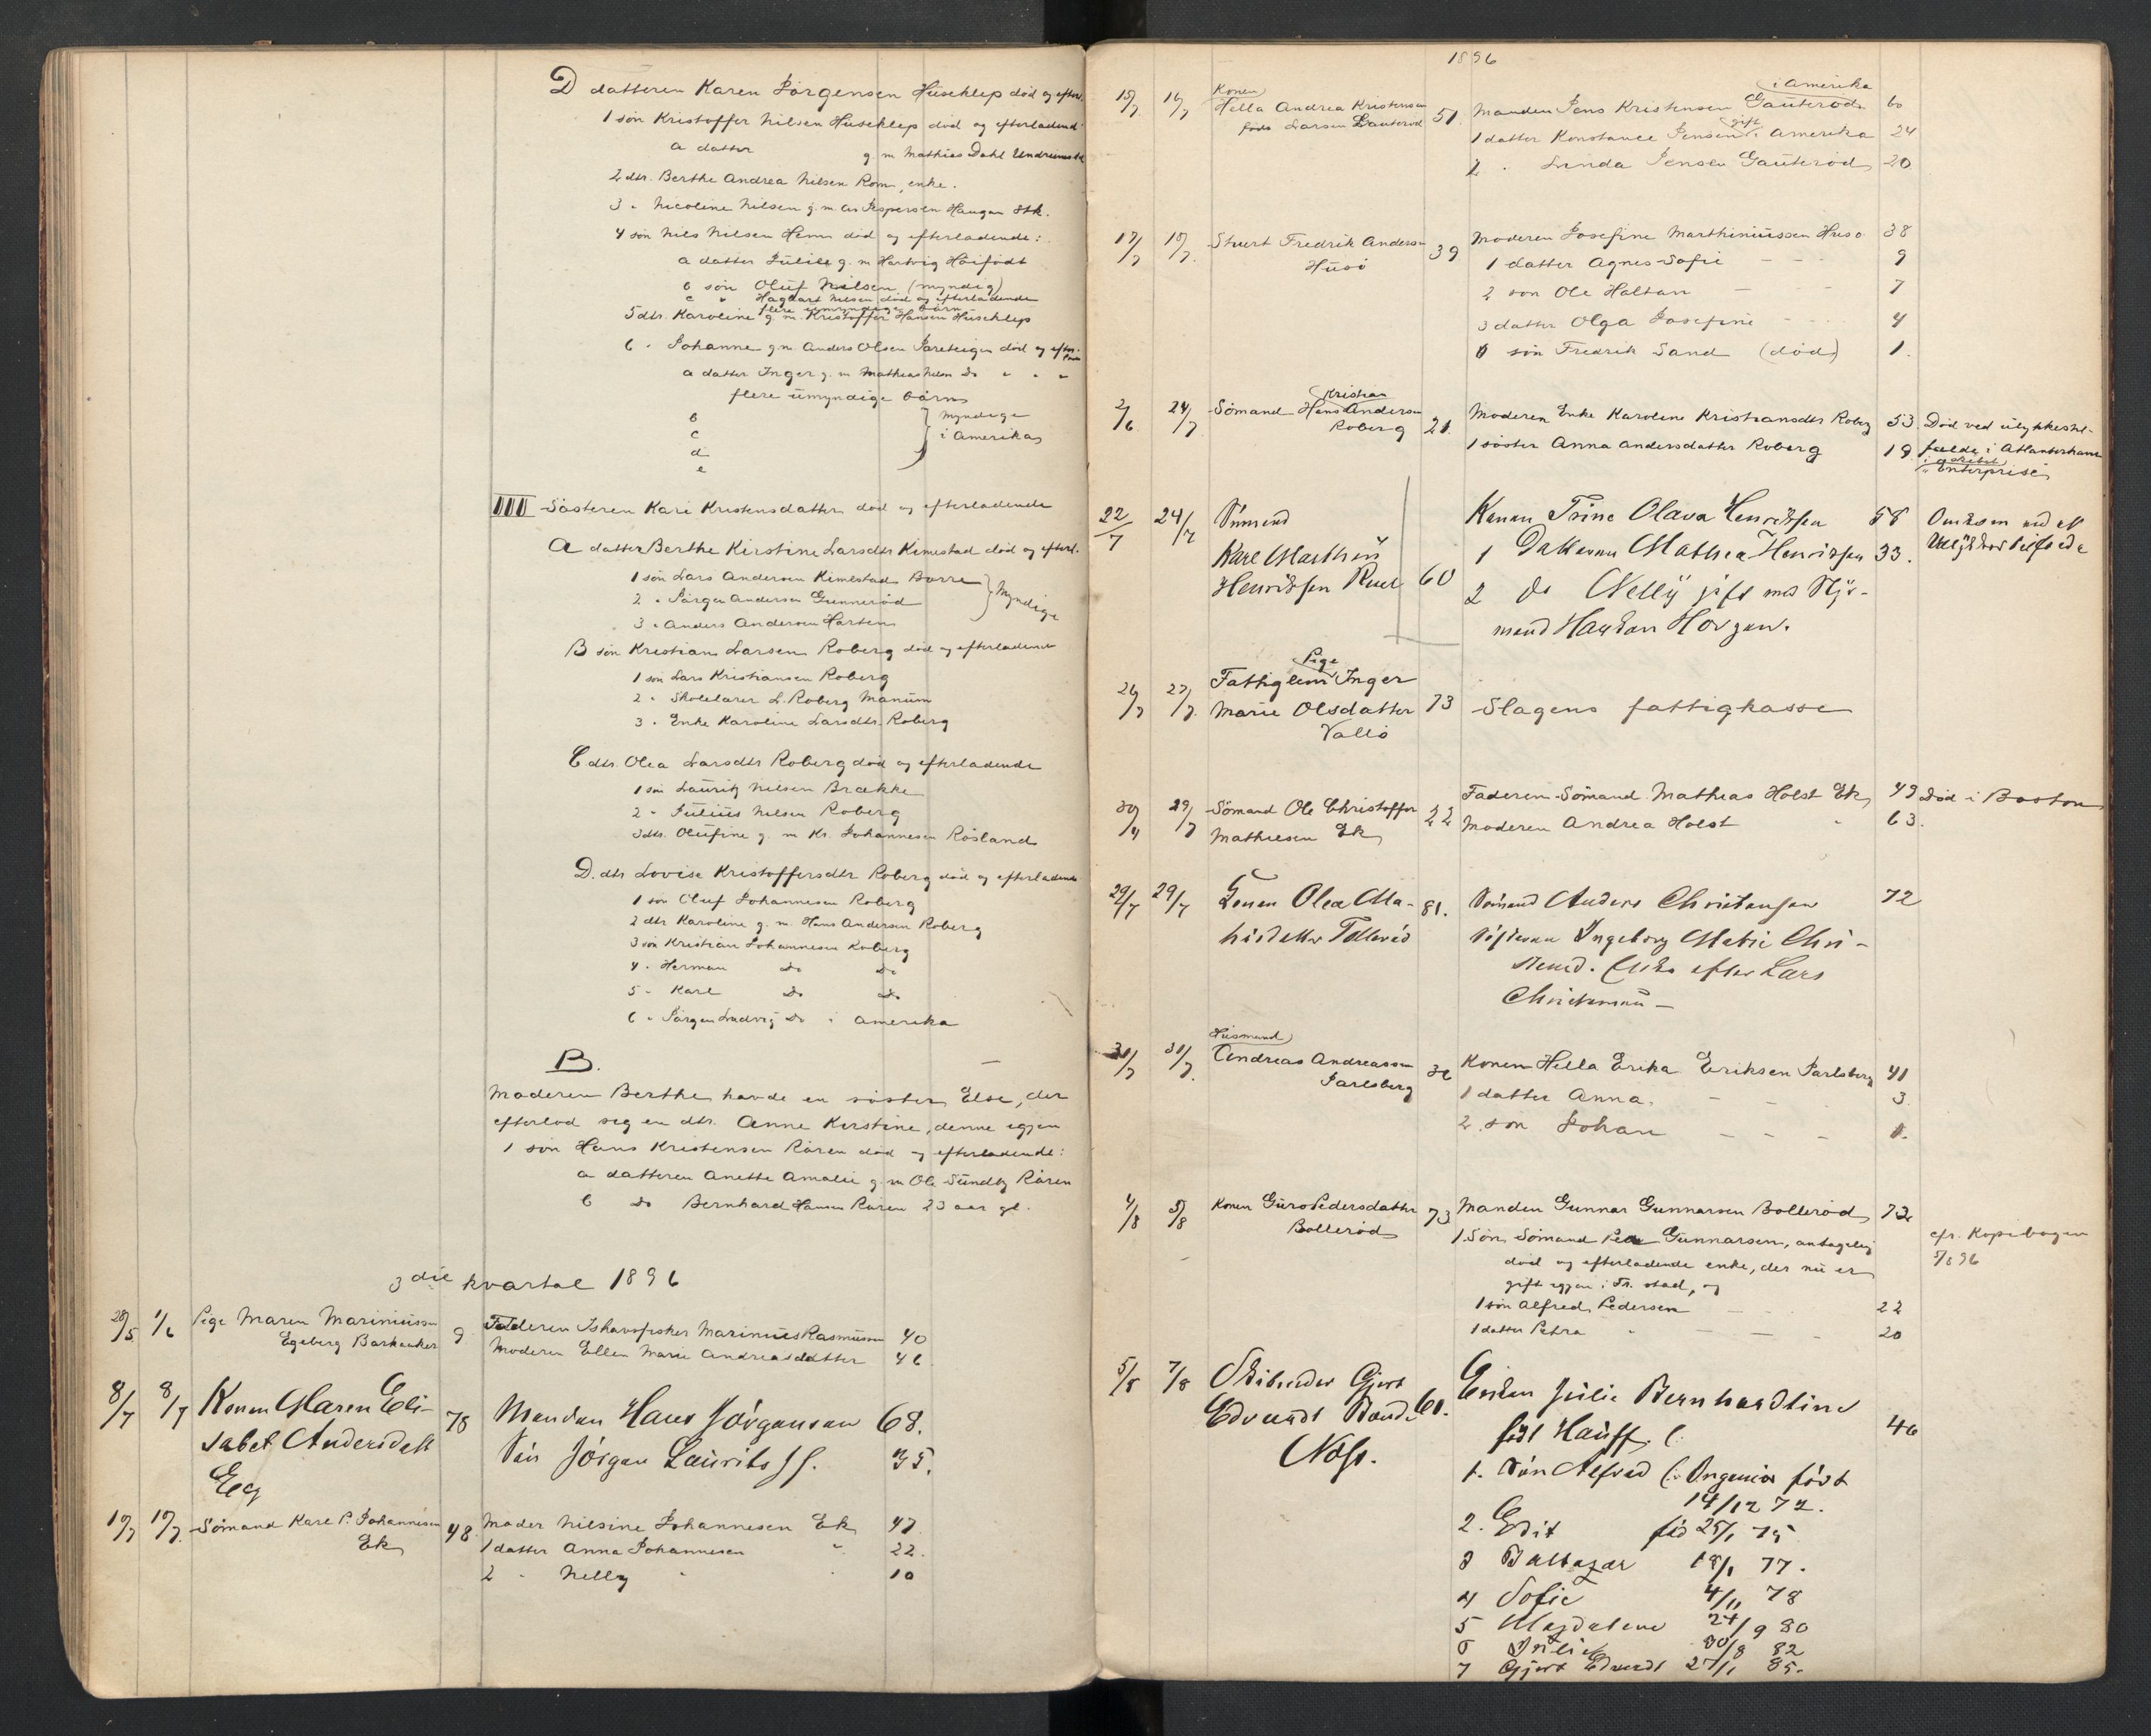 D datteren Karen Jörgensen Huseklep död og efterl.
1 sön Kristoffer Nilsen Huseklep död og efterladend
a datter g m Mathias Dahl
2 dtr. Berthe Andrea Nilsen Rom, enke.
3 " Nicoline Nilsen g. m. Jespersen Haugan Stk.
4 sön Nils Nilsen Hem död og efterladende:
a datter Julie g. m Hartvig Höifödt
b sön Oluf Nilsen (myndig)
c " Hagbart Nilsen död og efterladende
flere umyndige börn
5 dtr. Karoline g. m. Kristoffer Hansen Huseklep
6 " Johanne g m. Anders Olsen Jareteigen död og efter-
a datter Inger g. m Mathias Nilsen Do " " "
flere umyndige börn
b myndige
c i Amerika
d
e
III Sösteren Kari Kristensdatter död og efterladende
A datter Berthe Kirstine Larsdtr Kimestad död og efterl.
1 sön Lars Andersen Kimestad Borre
2 " Jörgen Andersen Gunneröd
Myndige
3 " Anders Andersen Hortens
B sön Kristian Larsen Roberg död og efterladende
1 sön Lars Kristiansen Roberg
2 " Skolelärer L. Roberg Manum
3 " Enke Karoline Larsdtr. Roberg
C dtr. Olea Larsdtr Roberg död og efterladende
1 sön Lauritz Nilsen Brække
2 " Julius Nilsen Roberg
3 dtr. Olufine g. m Kr. Johannesen Rösland
D. dtr Lovise Kristoffersdtr Roberg död og efterladende
1 sön Oluf Johannesen Roberg
2 dtr Karoline g. m. Hans Andersen Roberg
3 sön Kristian Johannesen Roberg
4 " Herman Do Do
5 " Karl Do Do
6 " Jörgen Ludvig Do i Amerika
B.
Moderen Berthe havde en söster, Else, der
efterlod sig en dtr. Anne Kirstine, denne igjen
1 sön Hans Kristensen Råren död og efterladende:
a datteren Anette Amalie g. m Ole Sundby Råren
b Do Bernhard Hansen Råren 23 aar gl.
3die kvartal 1896
28/5 1/6 Pige Maren Mariniussen 9 Faderen Ishavsfisker Marinius Rasmussen 40
Egeberg Barkaaker Moderen Ellen Marie Andreasdatter 46.
8/7 8/7 Konen Maren Eli- 78 Manden Hans Jörgensen 68.
sabet Andersdatt Sön Jörgen Laurits 35.
Eeg
Sömand Karl P. Johannesen 48. Moder Nilsine Johannesen Ek 47
Ek 1 datter Anna Johannesen " 22.
2 " Nelly " " 10
1896
i Amerika
15/7 16/7 Konen
Hella Andrea Kristensen 51. Manden Jens Kristensen Gauteröd 60
föds Larsen Gauteröd
1 datter Konstance Jensen gift i Amerika 24
2 " Linda Jensen Gauteröd 20
17/7 18/7. Stuert Fredrik Anders 39 Moderen Josefine Marthiniussen Husö 38
Husö 1 datter Agnes Sofie - - - 9
2 sön Ole Haltan - - 7
3 datter Olga Josefine - - 4
sön Fredrik Sand (död) 1.
2/6 24/7 Sömand Hans Kristian Andersen 21. Moderen Enke Karoline Kristiansdtr Roberg 53. Död ved ulykkestil-
Roberg 1 söster Anna Andersdatter Roberg 19 fælde i Atlanterhavet
Enterprise
22/7 24/7 Sömand Konen Trine Olava Henriksen 58
Karl Marthin 1 Datteren Mathea Henriksen 33.
Henriksen 60 2 do Nelly gift med Styr-
mand Haakon Horgen.
26/7 27/7. Fattiglem Pige Inger
Marie Olsdatter 73 Slagens fattigkasse
Vallö
29/7 Sömand Ole Christoffer 22 Faderen Sömand Mathias Holst Ek 49 Död i Boston
Mathiesen Ek Moderen Andrea Holst " 63.
29/7 29/7 Konen Olea Ma- 81. Sömand Anders Christensen 72
Sösteren Ingeborg Marie Chri-
stensd. Enke efter Lars
Christensen -
31/7 31/7. Husmand
Andreas Andreassen 36 Konen Hella Erika Eriksen Jarlsberg 41
Jarlsberg 1 datter Anna. - - 3.
2. sön Johan - - - 1.
4/8 5/8 Konen Guro Pedersdatter 73 Manden Gunnar Gunnarsen Bolleröd 72
Bolleröd 1. Sön Sömand Peder Gunnarsen, antagelig cfr. Kopibogen
död og efterladende enke, der nu er 5/8 96
gift igjen i Fr. stad, og
1 sön Alfred Pedersen - - 22
1 datter Petra " - - - 20
5/8 7/8 Skibsreder Gjert 61. Enken Julie Bernhardine 46
Edvardt Bonde född Hauff.
Næss. 1. Sön Alfred (: Ingeniør födt
14/12 72.
2. Edit fød 25/1 75
3 Baltazar 18/1 77.
4 Sofie 4/11 78
5 Magdalene 24/9 80
6 Julie 30/8 82
7 Gjert Edvardt 27/1 85.